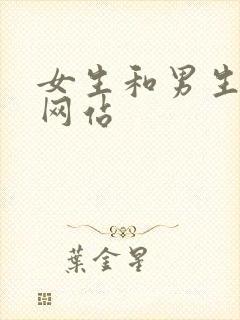 女生和男生
网佔
葉金星